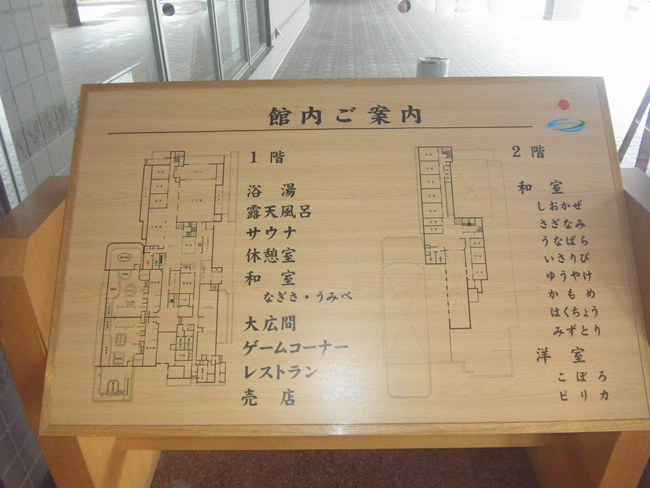 館内ご案内
1階
浴 湯
露天風呂
サウナ
休憩室
和 室
なぎさ・うみべ
大広間
ゲームコーナー
レストラン
売 店
2階
和 室
しおかぜ
さざなみ
うなばら
いさりび
ゆうやけ
かもめ
はくちょう
みずとり
洋 室
こぽろ
ピリカ